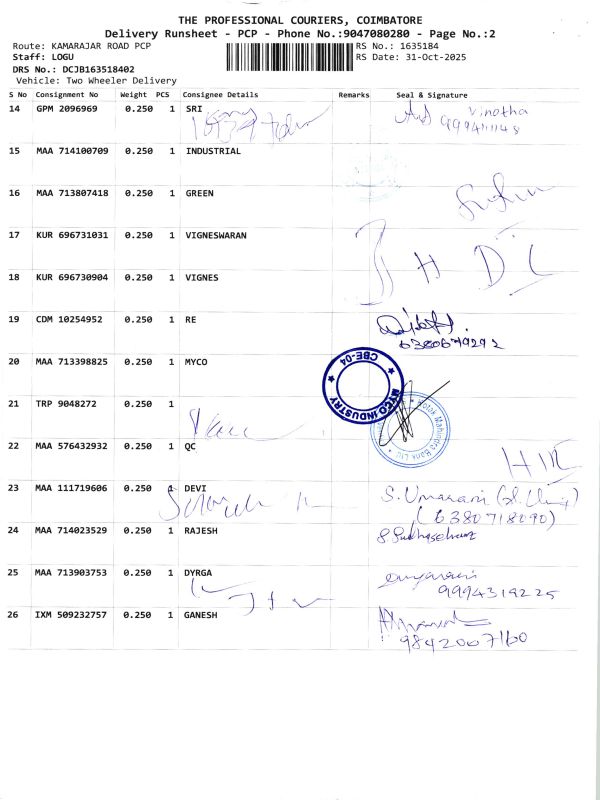 THE PROFESSIONAL COURIERS, COIMBATORE
Delivery Runsheet - PCP - Phone No.:9047080280 - Page No.:2
Route: KAMARAJAR ROAD PCP
RS No.: 1635184
Staff: LOGU
RS Date: 31-Oct-2025
DRS No.: DCJB163518402
Vehicle: Two Wheeler Delivery
S No Consignment No Weight PCS Consignee Details Remarks Seal & Signature
14 GPM 2096969 0.250 1 SRI Vinotha
15 MAA 714100709 0.250 1 INDUSTRIAL
16 MAA 713807418 0.250 1 GREEN
17 KUR 696731031 0.250 1 VIGNESWARAN
18 KUR 696730904 0.250 1 VIGNES
19 CDM 10254952 0.250 1 RE
6380679292
20 MAA 713398825 0.250 1 MYCO
MYCO INDUSTRY
CBE-04
21 TRP 9048272 0.250 1
Kotak Mahindra Bank Ltd
22 MAA 576432932 0.250 1 QC
23 MAA 111719606 0.250 1 DEVI S. Umarani
(6380718090)
24 MAA 714023529 0.250 1 RAJESH
25 MAA 713903753 0.250 1 DYRGA
9994319225
26 IXM 509232757 0.250 1 GANESH
9842007160